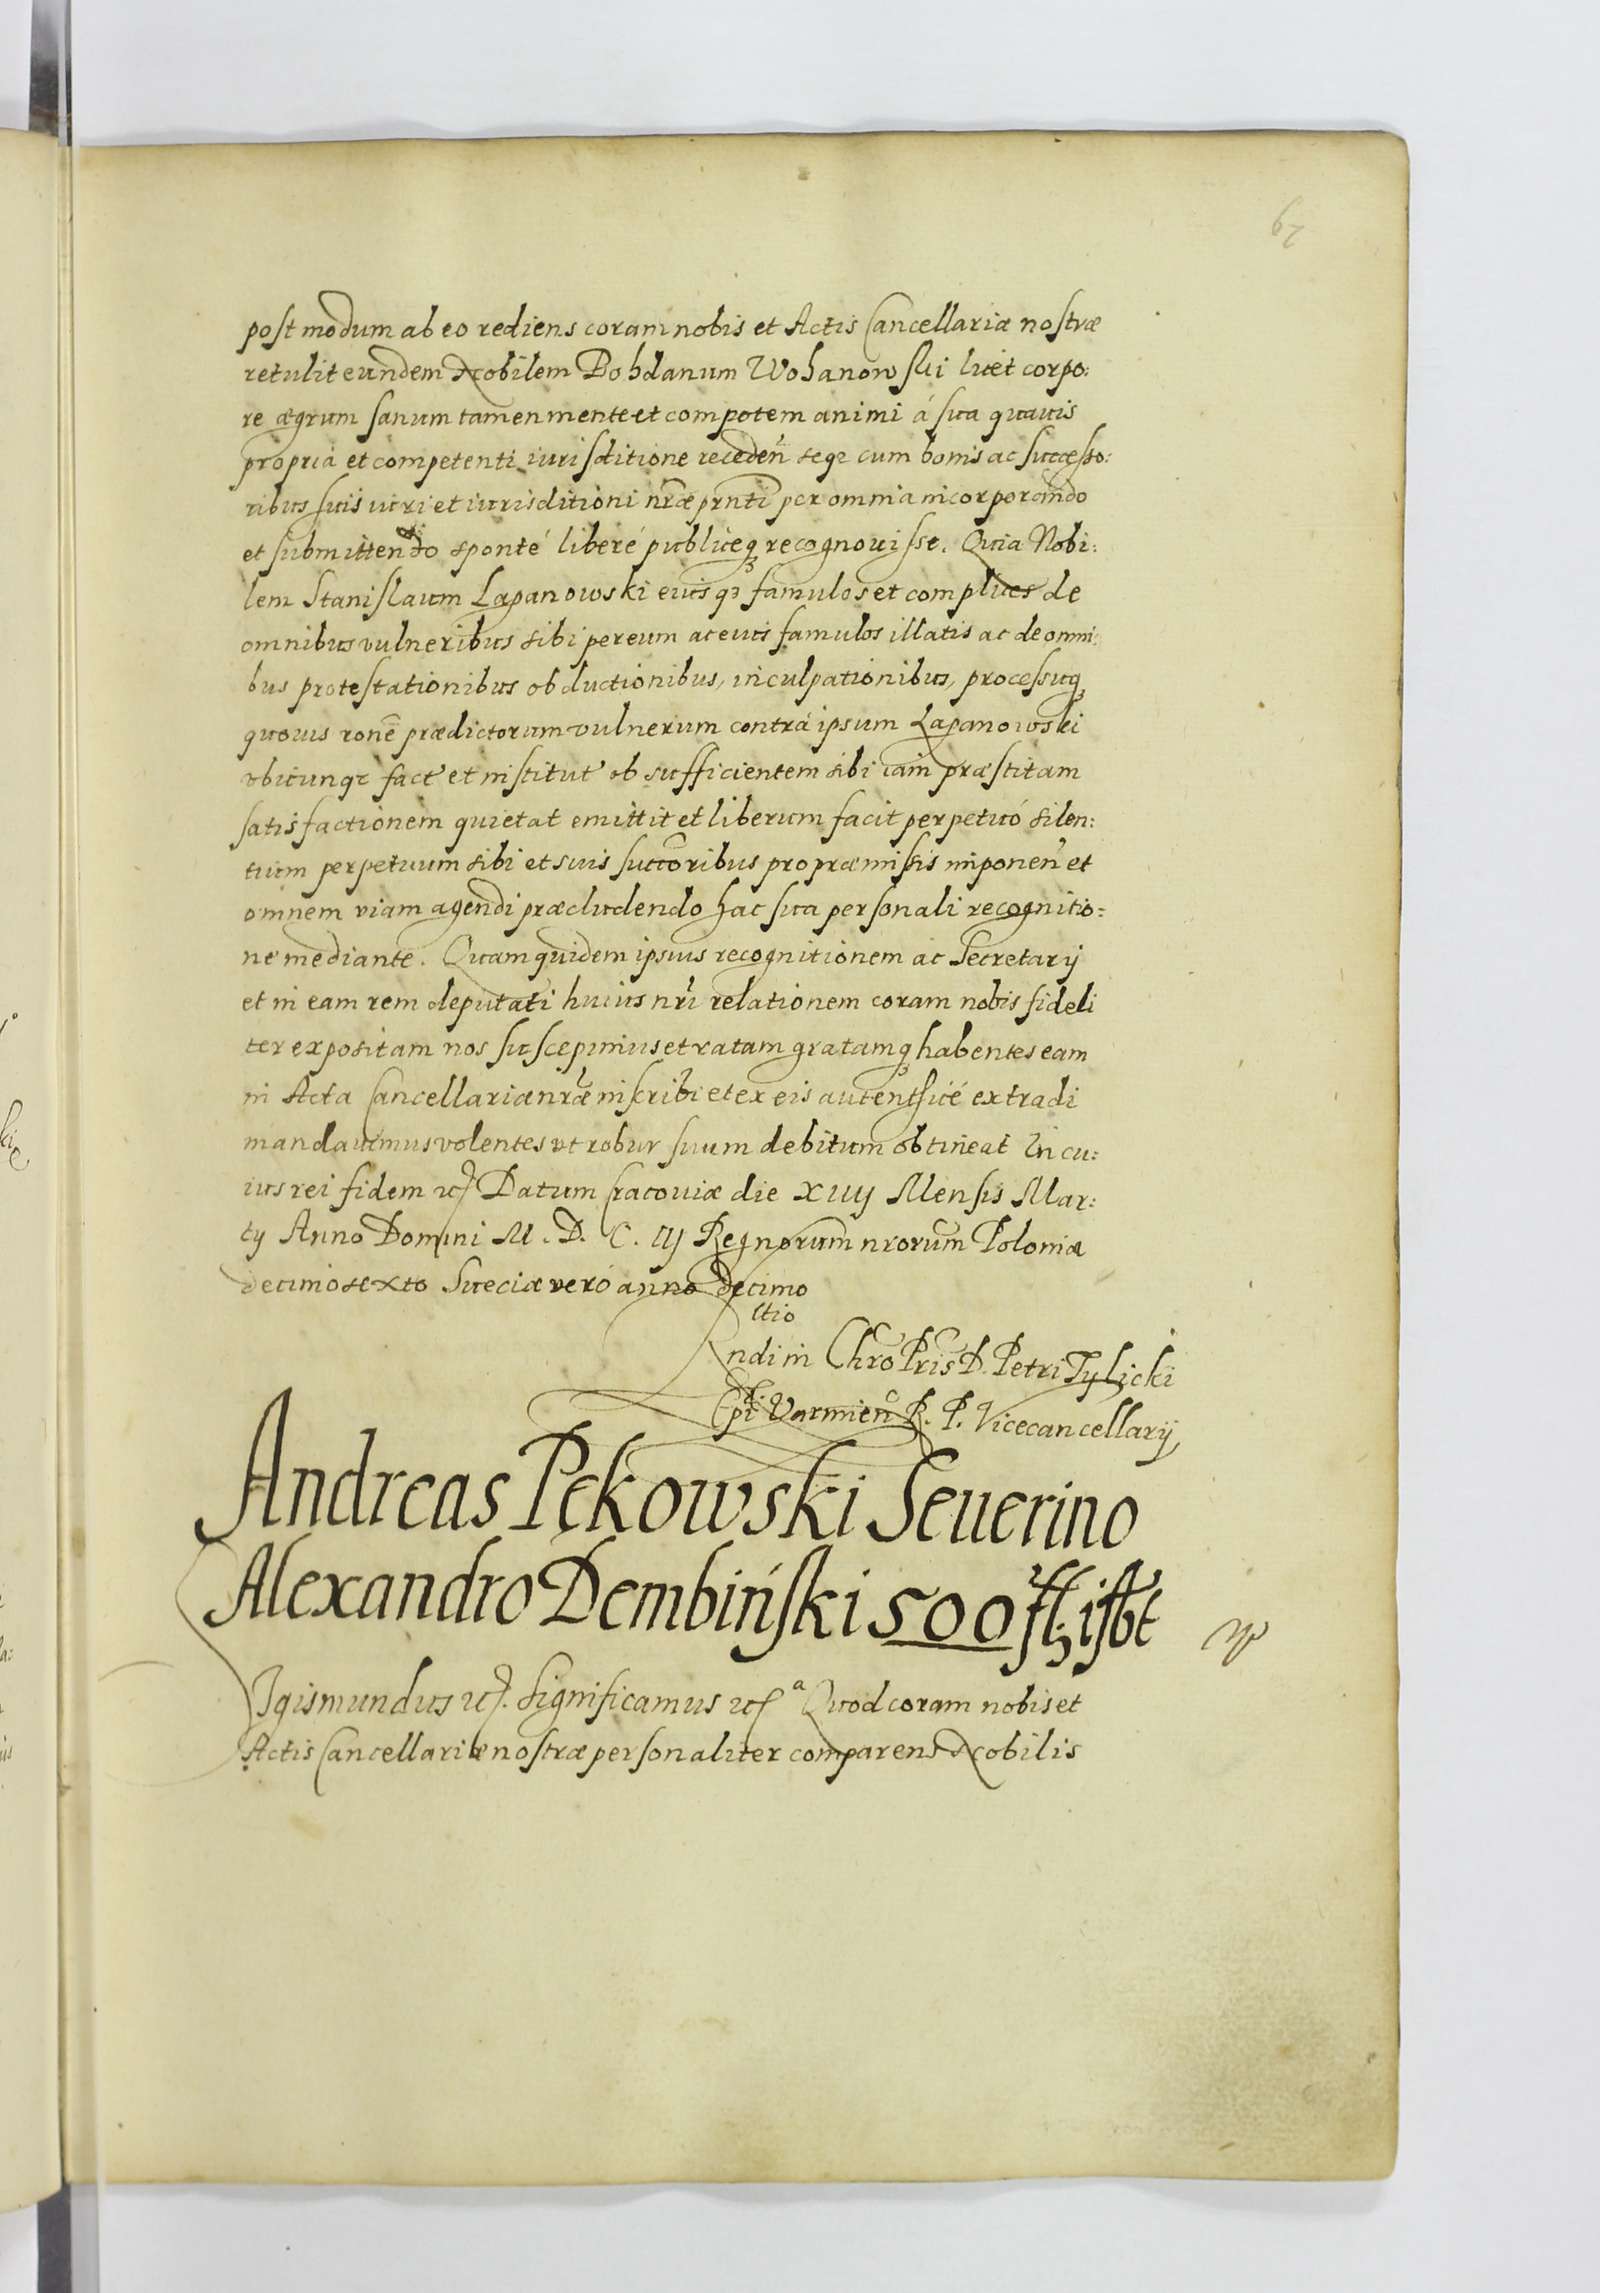 67
postmodum ab eo rediens coram nobis et Actis Cancellariæ nostræ
retulit eundem Nobilem Bohdanum Wohanowski licet corpo:
re ægrum sanum tamen mente et compotem animi á sua quavis
propria et competenti iurisditione receden̄ seq₃ cum bonis ac successo:
ribus suis iuri et iurisditioni nr̄æ prn̄ti per omnia incorporando
et submittendo sponté liberé publiceq₃ recognovisse. Quia Nobi:
lem Stanislaum Łapanowski eiusq₃ famulos et complices de
omnibus vulneribus sibi per eum ac eius famulos illatis ac de omni:
bus protestationibus obductionibus, inculpationibus, processuq₃
quovis ron̄e prædictorum vulnerum contrá ipsum Łapanowski
ubicunq₃ fact et institut ob sufficientem sibi iam præstitam
satisfactionem quietat emittit et liberum facit perpetuó silen:
tium perpetuum sibi et suis succ̄oribus pro præmissis imponen̄ et
omnem viam agendi præcludendo hac sua personali recognitio:
ne mediante. Quam quidem ipsius recognitionem ac Secretarij
et in eam rem deputati huius nr̄i relationem coram nobis fideli
ter expositam nos suscepimus et ratam gratamq₃ habentes eam
in Acta Cancellariæ nr̄æ inscribi et ex eis autenthicé extradi
mandavimus volentes ut robur suum debitum obtineat In cu:
ius rei fidem etc Datum Cracoviæ die XVIIJ Mensis Mar:
tij Anno Domini M. D. C. IIJ Regnorum nrorum Poloniæ
decimosexto Sueciæ veró anno decimo
Rltio
Rndi in Chro Pris D. Petri Tylicki
Epi Varmien̄ R. P. Vicecancellarij
Andreas Pękowski Seuerino
Alexandro Dembiński 500 fl: isbt
Sigismundus etc. Significamus etc a Quod coram nobis et
Actis Cancellariæ nostræ personaliter comparens Nobilis